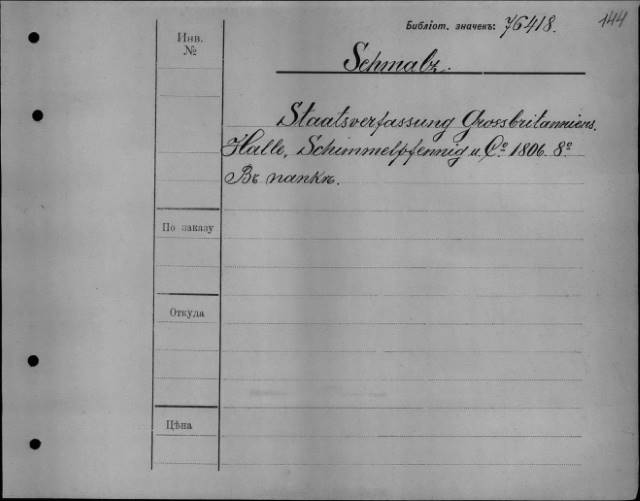 144
Библіот. значекъ: 76418.
Инв.
№
Schmalz.
Staatsverfassung Grossbritanniens.
Halle, Schimmelpfennig u. Co. 1806. 8o
Въ папкѣ.
По заказу
Откуда
Цѣна